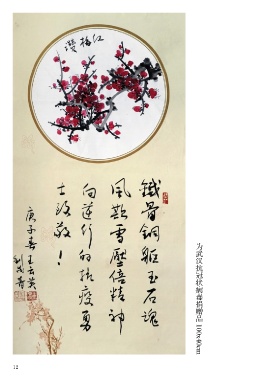 红梅赞
鐵骨銅軀玉石魂
風欺雪壓倍精神
向逆行的抗疫勇
士致敬！
庚子春王云英
为武汉抗冠状病毒捐赠品 100x40cm
12